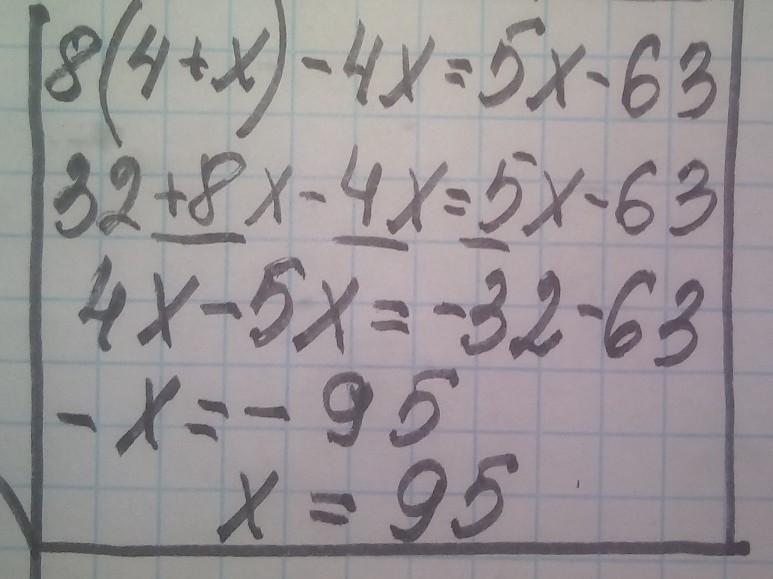 8(4+x)-4x=5x-63
32+8x-4x=5x-63
4x-5x=-32-63
-x=-95
x=95